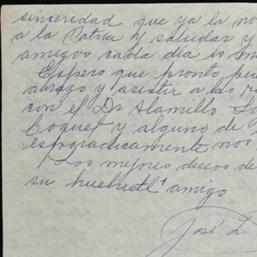 sinceridad que ya la no
a la Patria y saludar y
amigos cada día es
Espero que pronto
abrazo y asistir a las
con el Dr Alamillo
Coquet y alguno de
esporadicamente nos
Los mejores deseos de
su huehuetl amigo
José L.